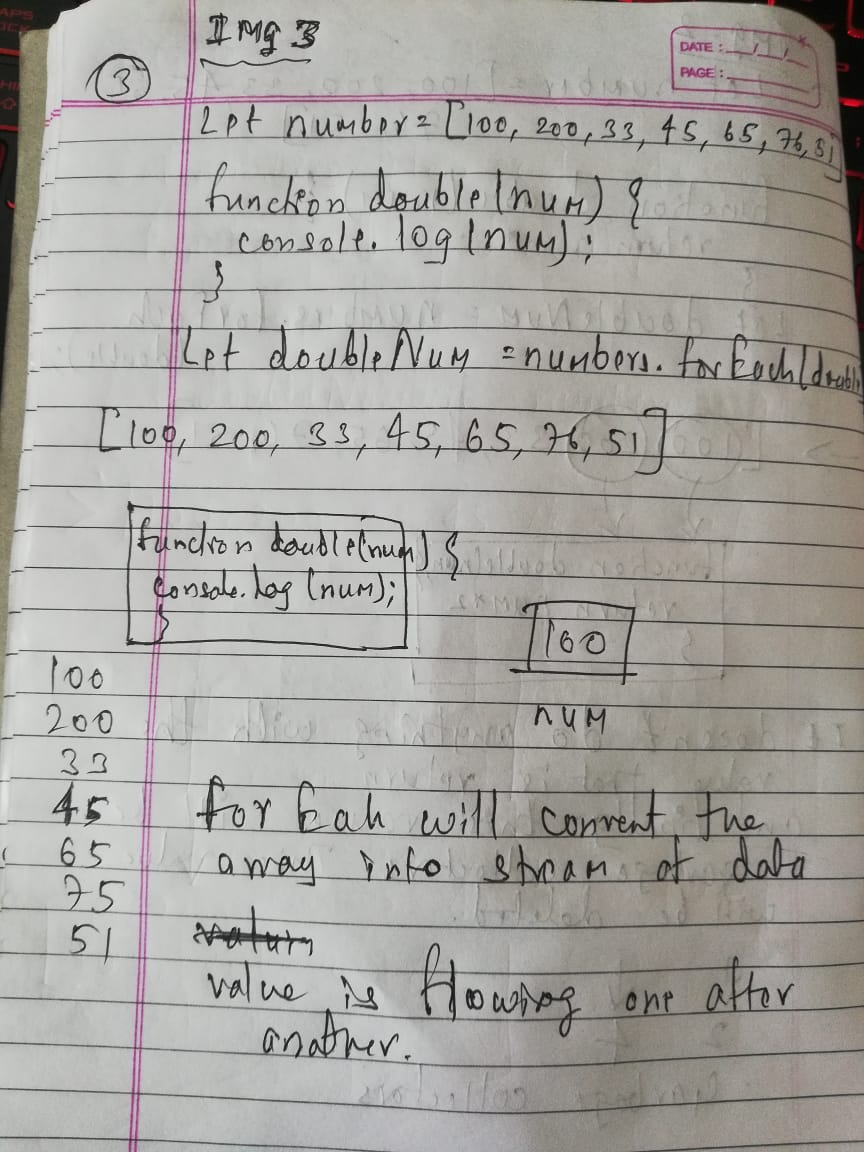 IMg 3
3
DATE :
PAGE :
Let number = [100, 200, 33, 45, 65, 76, 51]
function double (num) {
console. log (num);
}
Let doubleNum = numbers. forEach (double
[100, 200, 33, 45, 65, 76, 51]
function double(num) {
console. log (num);
}
100
num
100
200
33
45
65
75
51
for Eah will convent the
array into stream of data
value is flowing one after
another.